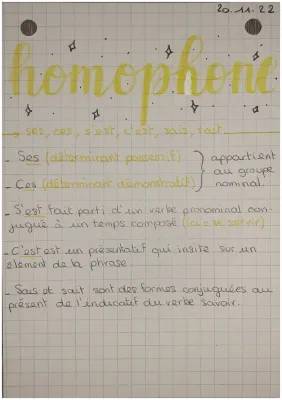 20.11.22
homophone
→ ses, ces, s'est, c'est, sais, sait
- Ses (déterminant possessif)
- Ces (déterminant démonstratif)
appartient
au groupe
nominal.
- S'est fait parti d'un verbe pronominal con-
jugué à un temps composé
- C'est est un présentatif qui insite sur un
element de la phrase.
- Sais et sait sont des formes conjuguées au
présent de l'indicatif du verbe savoir.